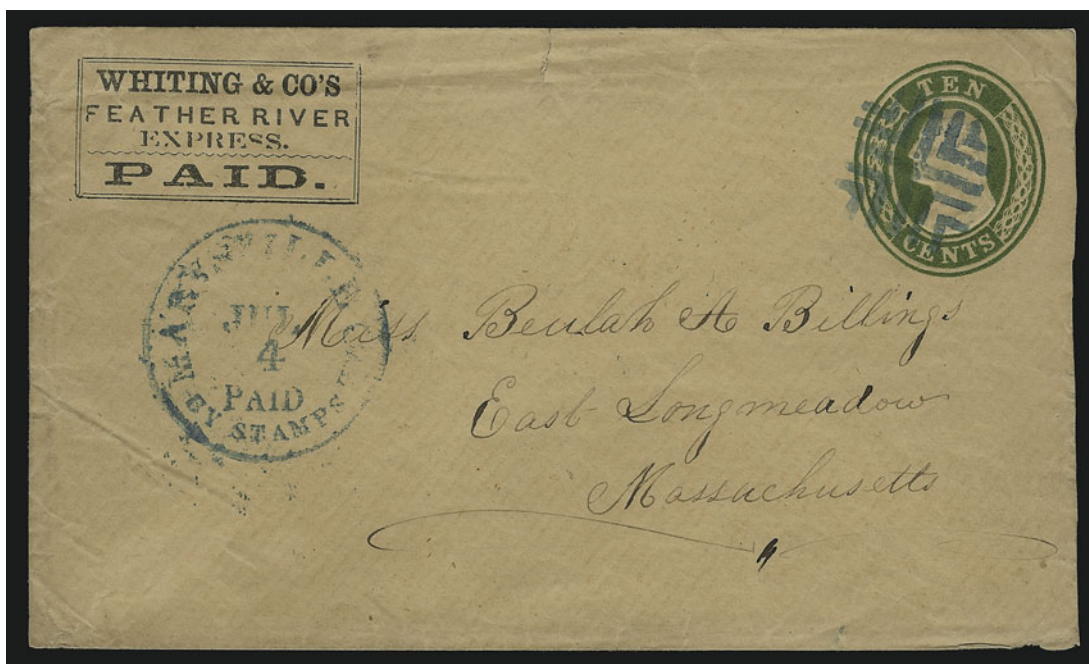 WHITING & CO'S
FEATHER RIVER
EXPRESS.
PAID.
TEN
CENTS
MARYSVILLE
JUL
4
PAID
BY STAMPS
Miss Beulah A Billings
East Longmeadow
Massachusetts